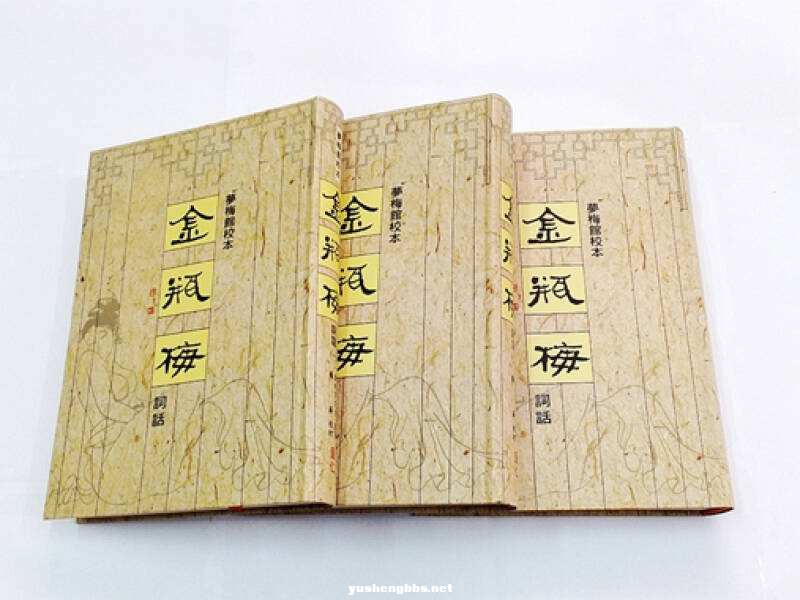 夢梅館校本
金瓶梅
詞話
金瓶梅
夢梅館校本
金瓶梅
金瓶梅
夢梅館校本
金瓶梅
詞話
yushengbbs.net